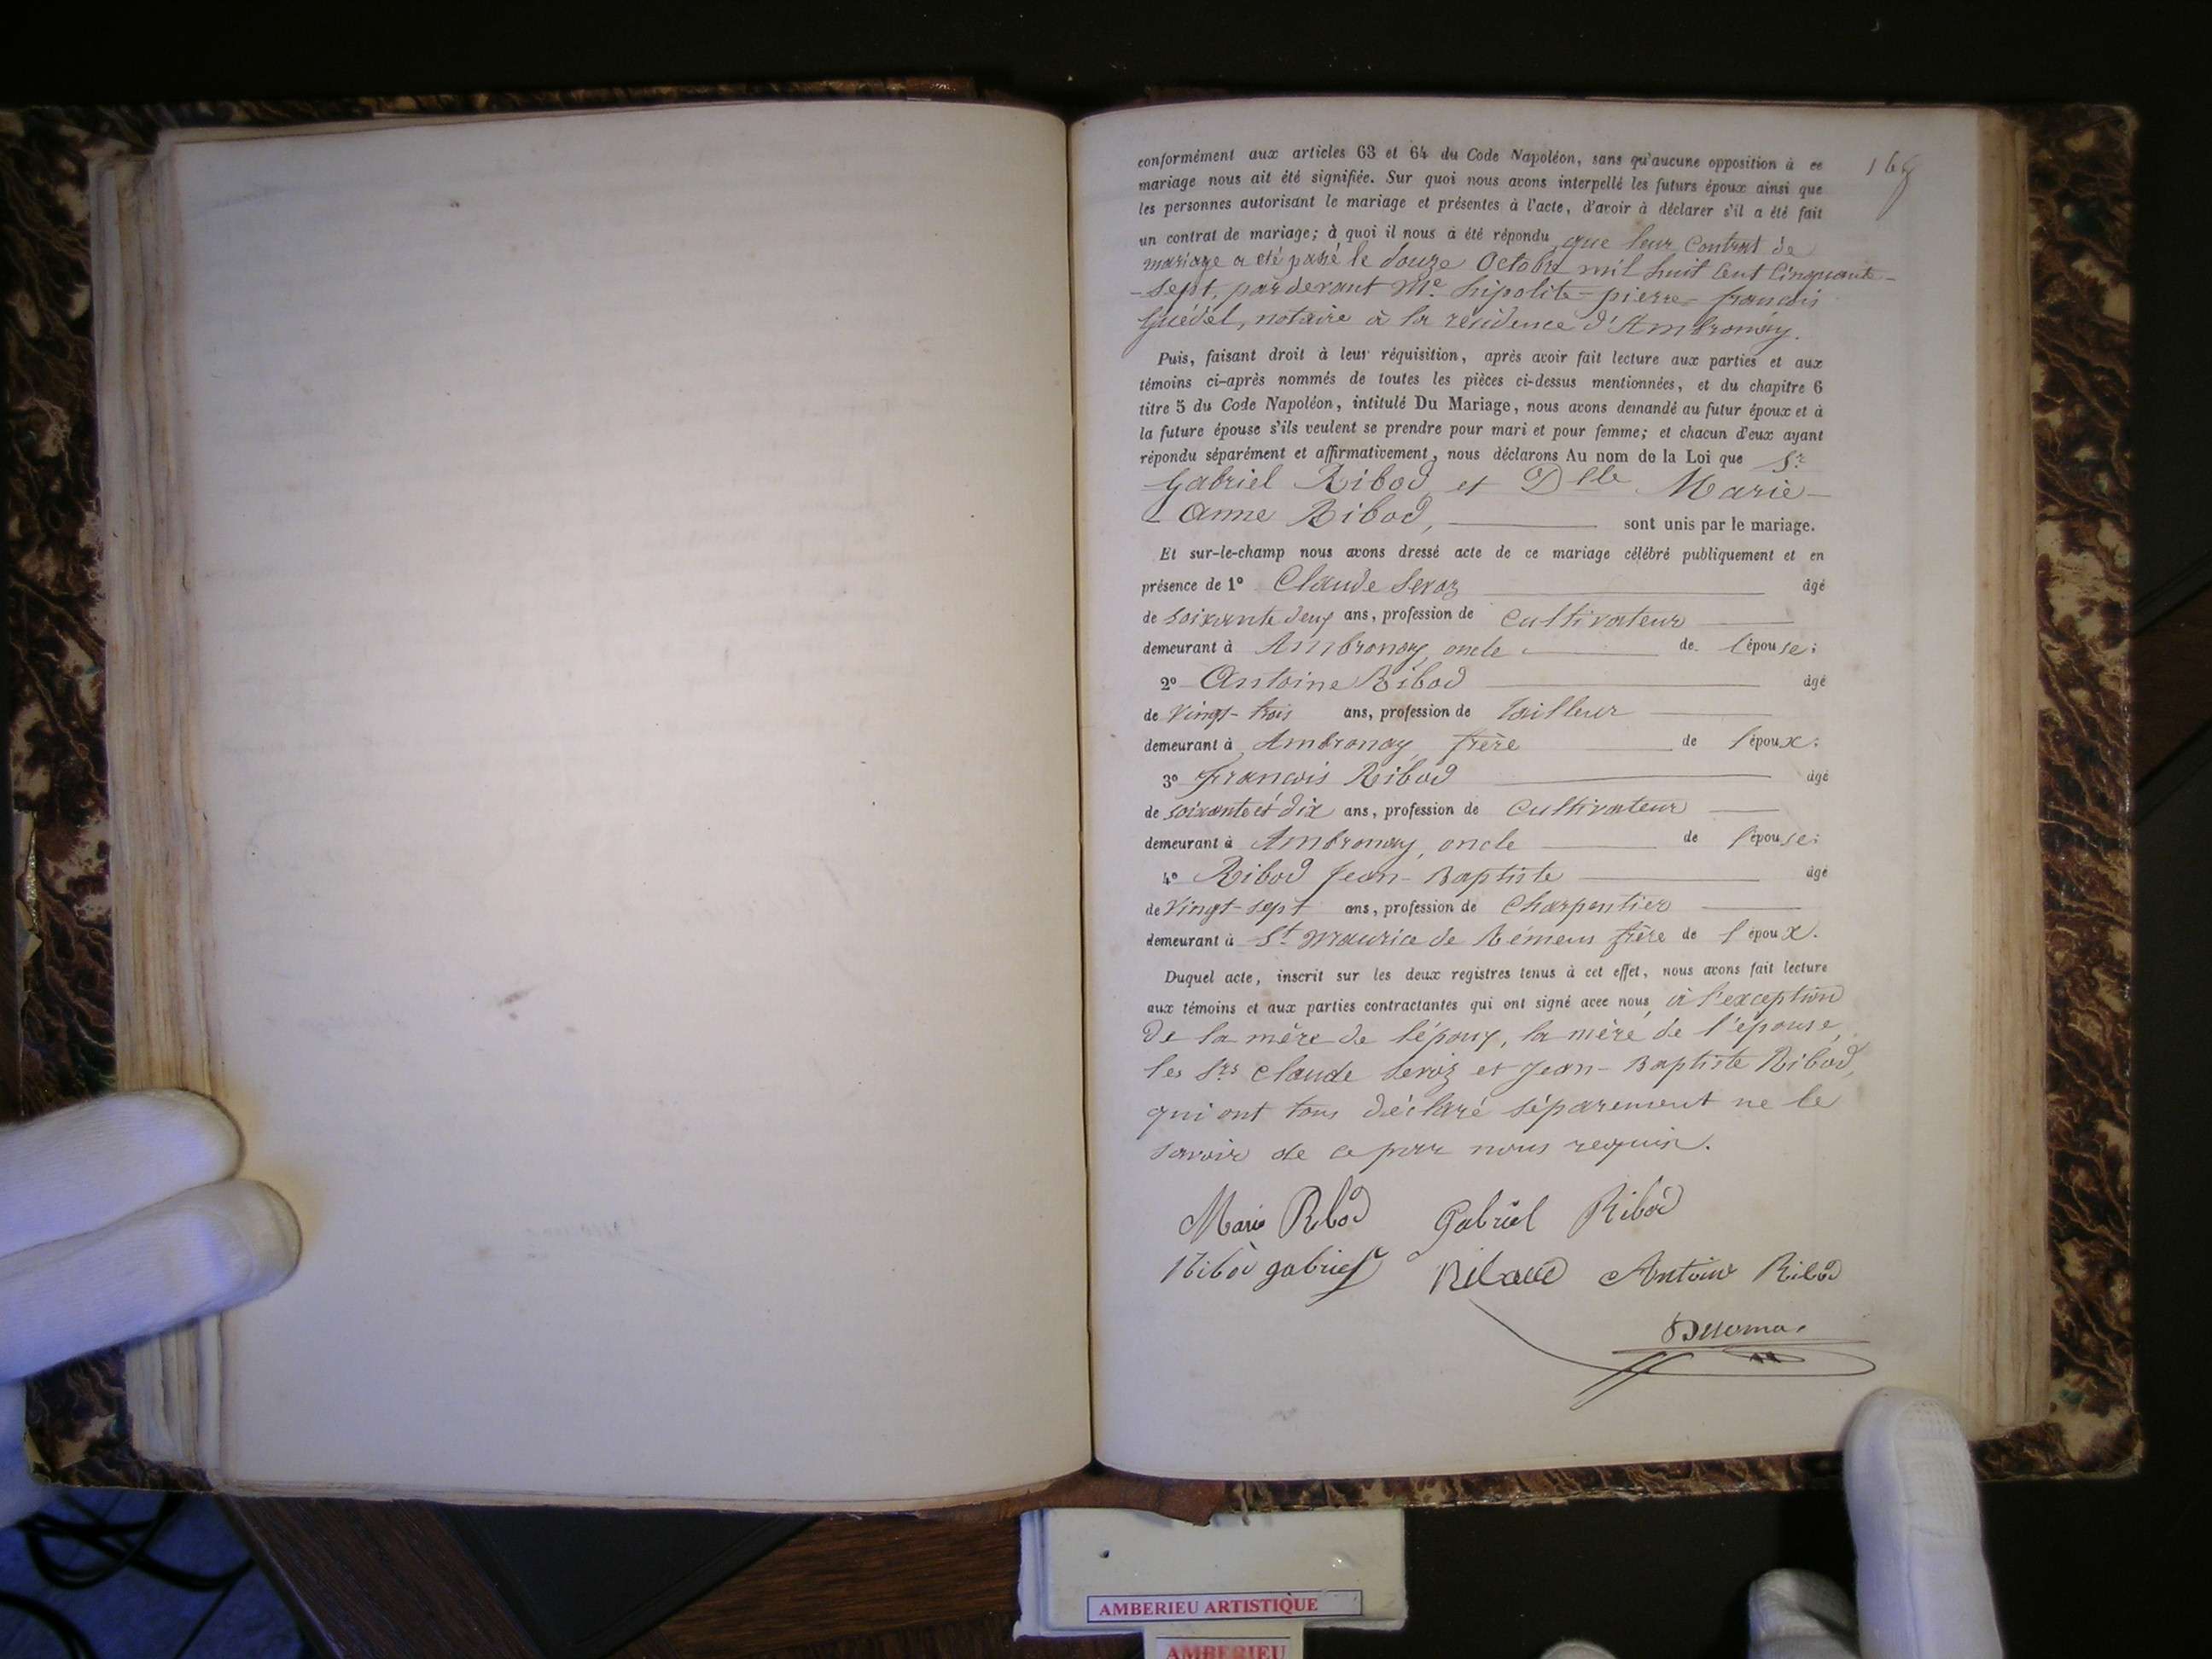 conformément aux articles 63 et 64 du Code Napoléon, sans qu'aucune opposition à ce
mariage nous ait été signifiée. Sur quoi nous avons interpellé les futurs époux ainsi que
les personnes autorisant le mariage et présentes à l'acte, d'avoir à déclarer s'il a été fait
un contrat de mariage; à quoi il nous a été répondu que leur Contrat de
mariage a été passé le douze Octobre mil huit Cent Cinquante-
-Sept, pardevant Me hipolite-pierre-françois
Guédel, notaire à la résidence d'Ambronay.
Puis, faisant droit à leur réquisition, après avoir fait lecture aux parties et aux
témoins ci-après nommés de toutes les pièces ci-dessus mentionnées, et du chapitre 6
titre 5 du Code Napoléon, intitulé Du Mariage, nous avons demandé au futur époux et à
la future épouse s'ils veulent se prendre pour mari et pour femme; et chacun d'eux ayant
répondu séparément et affirmativement, nous déclarons Au nom de la Loi que Sr
Gabriel Ribod et Dlle Marie-
Anne Ribod, sont unis par le mariage.
Et sur-le-champ nous avons dressé acte de ce mariage célébré publiquement et en
présence de 1° Claude Seroz âgé
de soixante deux ans, profession de Cultivateur
demeurant à Ambronay, oncle de l'épouse;
2° Antoine Ribod âgé
de Vingt-trois ans, profession de tailleur
demeurant à Ambronay, frère de l'époux;
3° françois Ribod âgé
de soixante et dix ans, profession de Cultivateur
demeurant à Ambronay, oncle de l'épouse;
4° Ribod Jean-Baptiste âgé
de Vingt-sept ans, profession de Charpentier
demeurant à St maurice de Rémens frère de l'époux.
Duquel acte, inscrit sur les deux registres tenus à cet effet, nous avons fait lecture
aux témoins et aux parties contractantes qui ont signé avec nous, à l'exception
De la mère de l'époux, la mère de l'épouse,
les Srs Claude Seroz et Jean-Baptiste Ribod,
qui ont tous déclaré séparement ne le
savoir de ce par nous requis.
Marie Ribod Gabriel Ribod
Ribod gabriel Antoine Ribod
AMBERIEU ARTISTIQUE
AMBERIEU